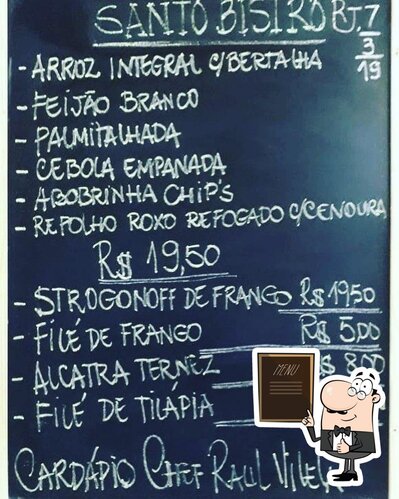 SANTO BISTRO RJ. 7
3
19
- ARROZ INTEGRAL C/BERTALHA
- FEIJÃO BRANCO
- PALMITALHADA
- CEBOLA EMPANADA
- ABOBRINHA CHiP'S
- REPOLHO ROXO REFOGADO C/CENOURA
R$ 19,50
- STROGONOFF DE FRANGO R$ 19,50
- FILÉ DE FRANGO R$ 5,00
- ALCATRA TERNEZ $ 8,00
- FILÉ DE TILÁPIA
CARDÁPIO CHEF RAUL
MENU